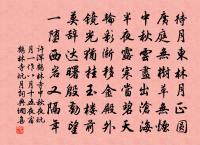 待月東林月正圓
廣庭無樹草無煙
中秋雲盡出滄海
半夜露寒當碧天
輪彩漸移金殿外
鏡光猶挂玉樓前
莫辭達曙殷勤望
一墮西岩又隔年
許渾鶴林寺中秋夜玩
月一作八月十五夜宿
鶴林寺玩月詞典網